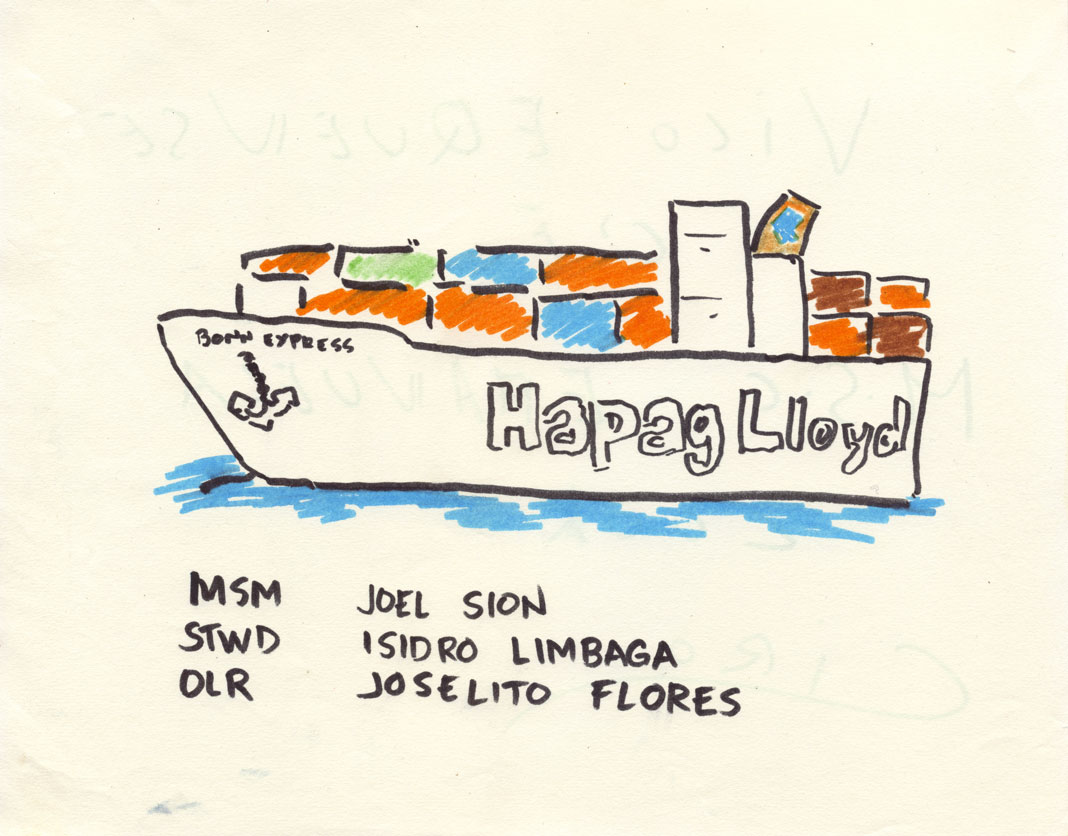 BONN EXPRESS
Hapag Lloyd
MSM JOEL SION
STWD ISIDRO LIMBAGA
OLR JOSELITO FLORES